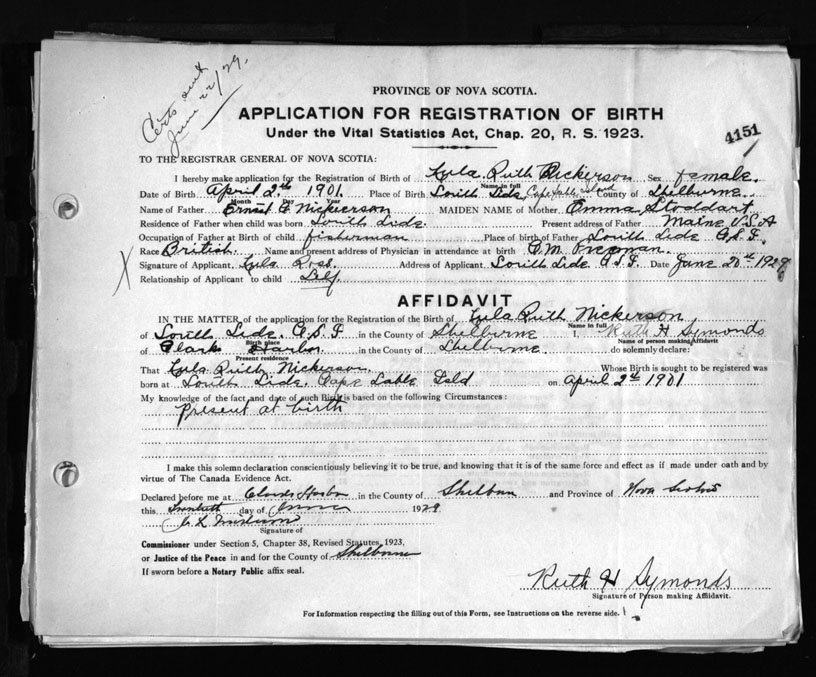 Certs sent
June 22/29.
PROVINCE OF NOVA SCOTIA.
APPLICATION FOR REGISTRATION OF BIRTH
Under the Vital Statistics Act, Chap. 20, R. S. 1923.
4151
TO THE REGISTRAR GENERAL OF NOVA SCOTIA:
I hereby make application for the Registration of Birth of Lyla Ruth Nickerson Sex female.
Name in full
Date of Birth April 2nd 1901. Place of Birth South Side Cape Sable Island County of Shelburne.
Month Day Year
Name of Father Ernest C Nickerson MAIDEN NAME of Mother Emma Stoddart
Residence of Father when child was born South Side. Present address of Father Maine U.S.A
Occupation of Father at Birth of child fisherman Place of birth of Father South Side C.S.I.
Race British. Name and present address of Physician in attendance at birth
Signature of Applicant Lyla Ross. Address of Applicant South Side C.S.I. Date June 20th 1929
Relationship of Applicant to child Self.
AFFIDAVIT
IN THE MATTER of the application for the Registration of the Birth of Lyla Ruth Nickerson
Name in full
of South Side. C.S.I in the County of Shelburne I, Ruth H Symonds
Birth place Name of person making Affidavit
of Clarks Harbor in the County of Shelburne. do solemnly declare:
Present residence
That Lyla Ruth Nickerson. Whose Birth is sought to be registered was
born at South Side. Cape Sable Isld on April 2nd 1901
My knowledge of the fact and date of such Birth is based on the following Circumstances:
Present at birth
I make this solemn declaration conscientiously believing it to be true, and knowing that it is of the same force and effect as if made under oath and by
virtue of The Canada Evidence Act.
Declared before me at Clarks Harbor in the County of Shelburne and Province of Nova Scotia
this day of June 1929
Signature of
Commissioner under Section 5, Chapter 38, Revised Statutes, 1923,
or Justice of the Peace in and for the County of Shelburne
If sworn before a Notary Public affix seal.
Ruth H Symonds
Signature of Person making Affidavit.
For Information respecting the filling out of this Form, see Instructions on the reverse side.